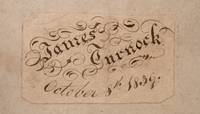 James
Turnock
October 8th 1839.